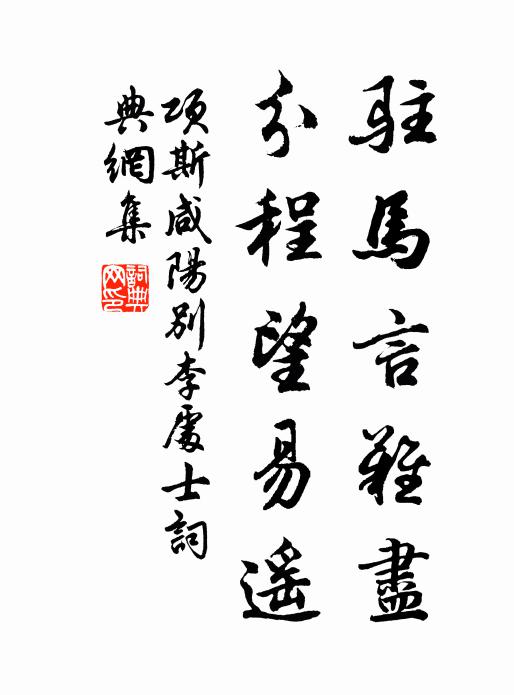 駐馬言難盡
分程望易遥
項斯咸陽別李處士詞
典網集
詞典网印